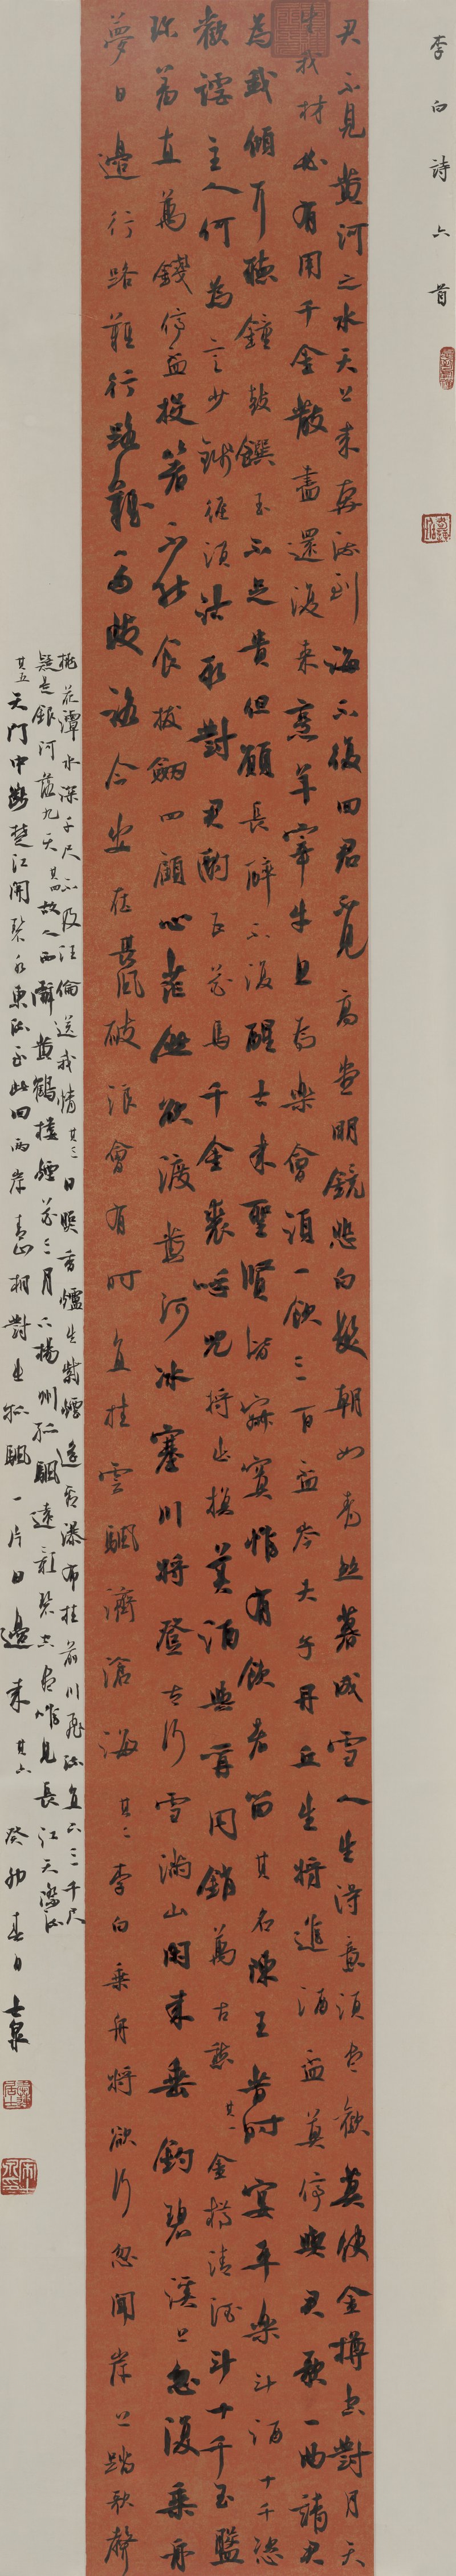 李白詩六首
君不見黃河之水天上來奔流到海不復回君不見高堂明鏡悲白髮朝如青絲暮成雪人生得意須盡歡莫使金樽空對月天
生我材必有用千金散盡還復來烹羊宰牛且為樂會須一飲三百盃岑夫子丹丘生將進酒盃莫停與君歌一曲請君
為我傾耳聽鐘鼓饌玉不足貴但願長醉不復醒古來聖賢皆寂寞惟有飲者留其名陳王昔時宴平樂斗酒十千恣
歡謔主人何為言少錢徑須沽取對君酌五花馬千金裘呼兒將出換美酒與爾同銷萬古愁其一金樽清酒斗十千玉盤
珍羞直萬錢停盃投箸不能食拔劍四顧心茫然欲渡黃河冰塞川將登太行雪滿山閑來垂釣碧溪上忽復乘舟
夢日邊行路難行路難多歧路今安在長風破浪會有時直挂雲颿濟滄海其二李白乘舟將欲行忽聞岸上踏歌聲
桃花潭水深千尺不及汪倫送我情其三日照香爐生紫煙遙看瀑布挂前川飛流直下三千尺
疑是銀河落九天其四故人西辭黃鶴樓煙花三月下揚州孤颿遠影碧空盡惟見長江天際流
其五天門中斷楚江開碧水東流至此回兩岸青山相對出孤颿一片日邊來其六癸卯春日士泉